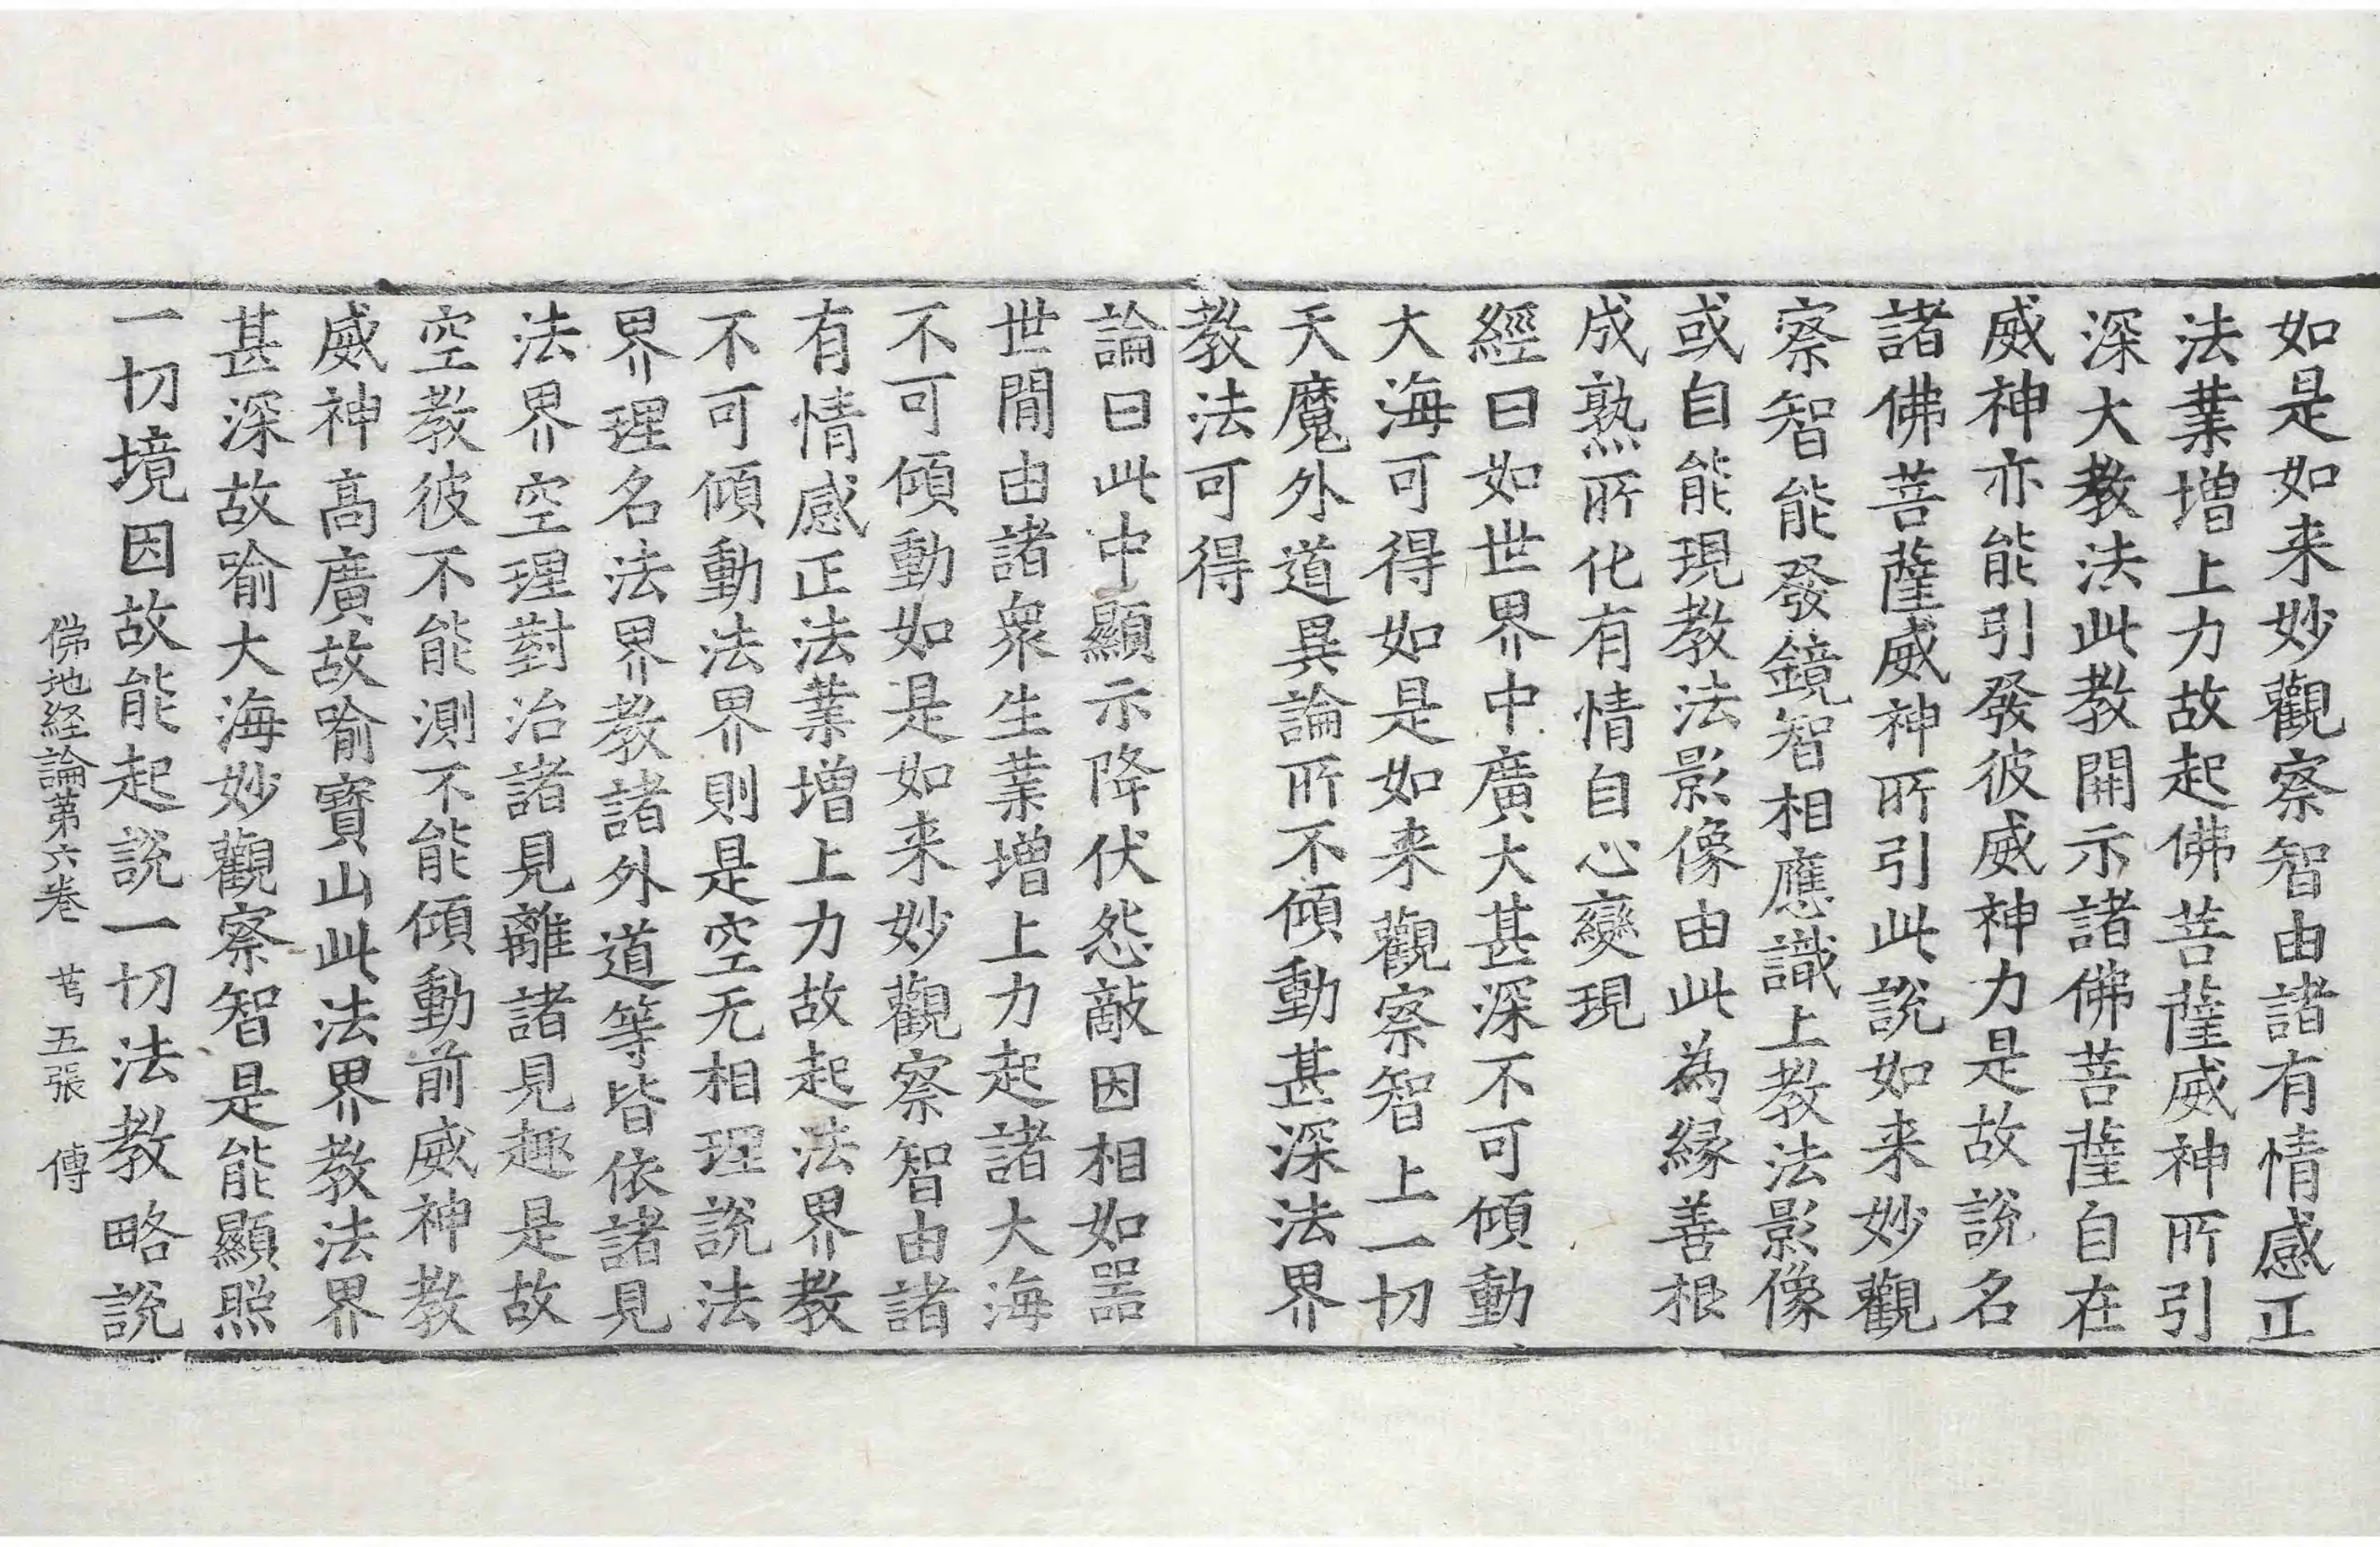 如是如来妙觀察智由諸有情感正
法業增上力故起佛菩薩威神所引
深大教法此教開示諸佛菩薩自在
威神亦能引發彼威神力是故說名
諸佛菩薩威神所引此說如来妙觀
察智能發鏡智相應識上教法影像
或自能現教法影像由此為緣善根
成熟所化有情自心變現
經曰如世界中廣大甚深不可傾動
大海可得如是如来觀察智上一切
天魔外道異論所不傾動甚深法界
教法可得
論曰此中顯示降伏怨敵因相如器
世間由諸衆生業增上力起諸大海
不可傾動如是如来妙觀察智由諸
有情感正法業增上力故起法界教
不可傾動法界則是空无相理說法
界理名法界教諸外道等皆依諸見
法界空理對治諸見離諸見趣是故
空教彼不能測不能傾動前威神教
威神高廣故喻寶山此法界教法界
甚深故喻大海妙觀察智是能顯照
一切境因故能起說一切法教略說
佛地經論第六卷 五張 傅